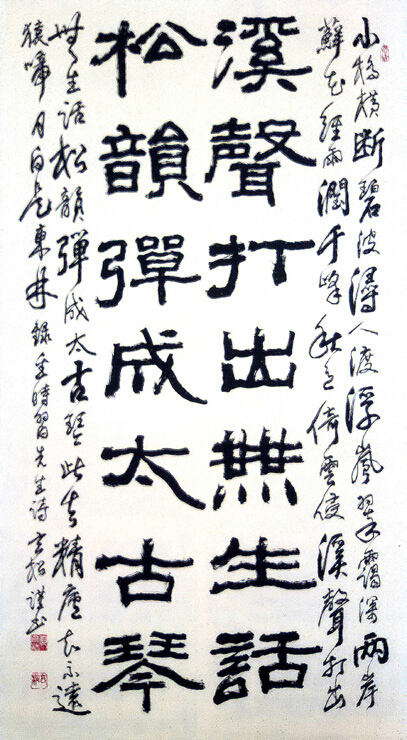 小橋橫断碧波潯人渡浮嵐翠靄深兩岸
蘚花經雨潤千峰秋色倚雲侵溪聲打出
溪聲打出無生話
松韻彈成太古琴
無生話松韻彈成太古琴此去精廬知不遠
猿啼月白是東林 錄金時習先生詩